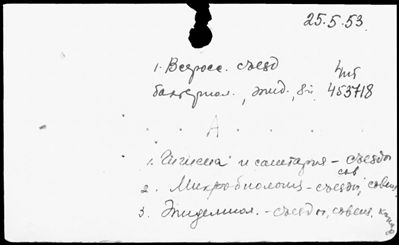 25.5.53
1. Всеросс. съезд
бактериол., эпид., 8-й 453718
А
1. Гигиена и санитария – съезды
2. Микробиология – съезды, совещ.
3. Эпидемиол. – съезды, совещ.